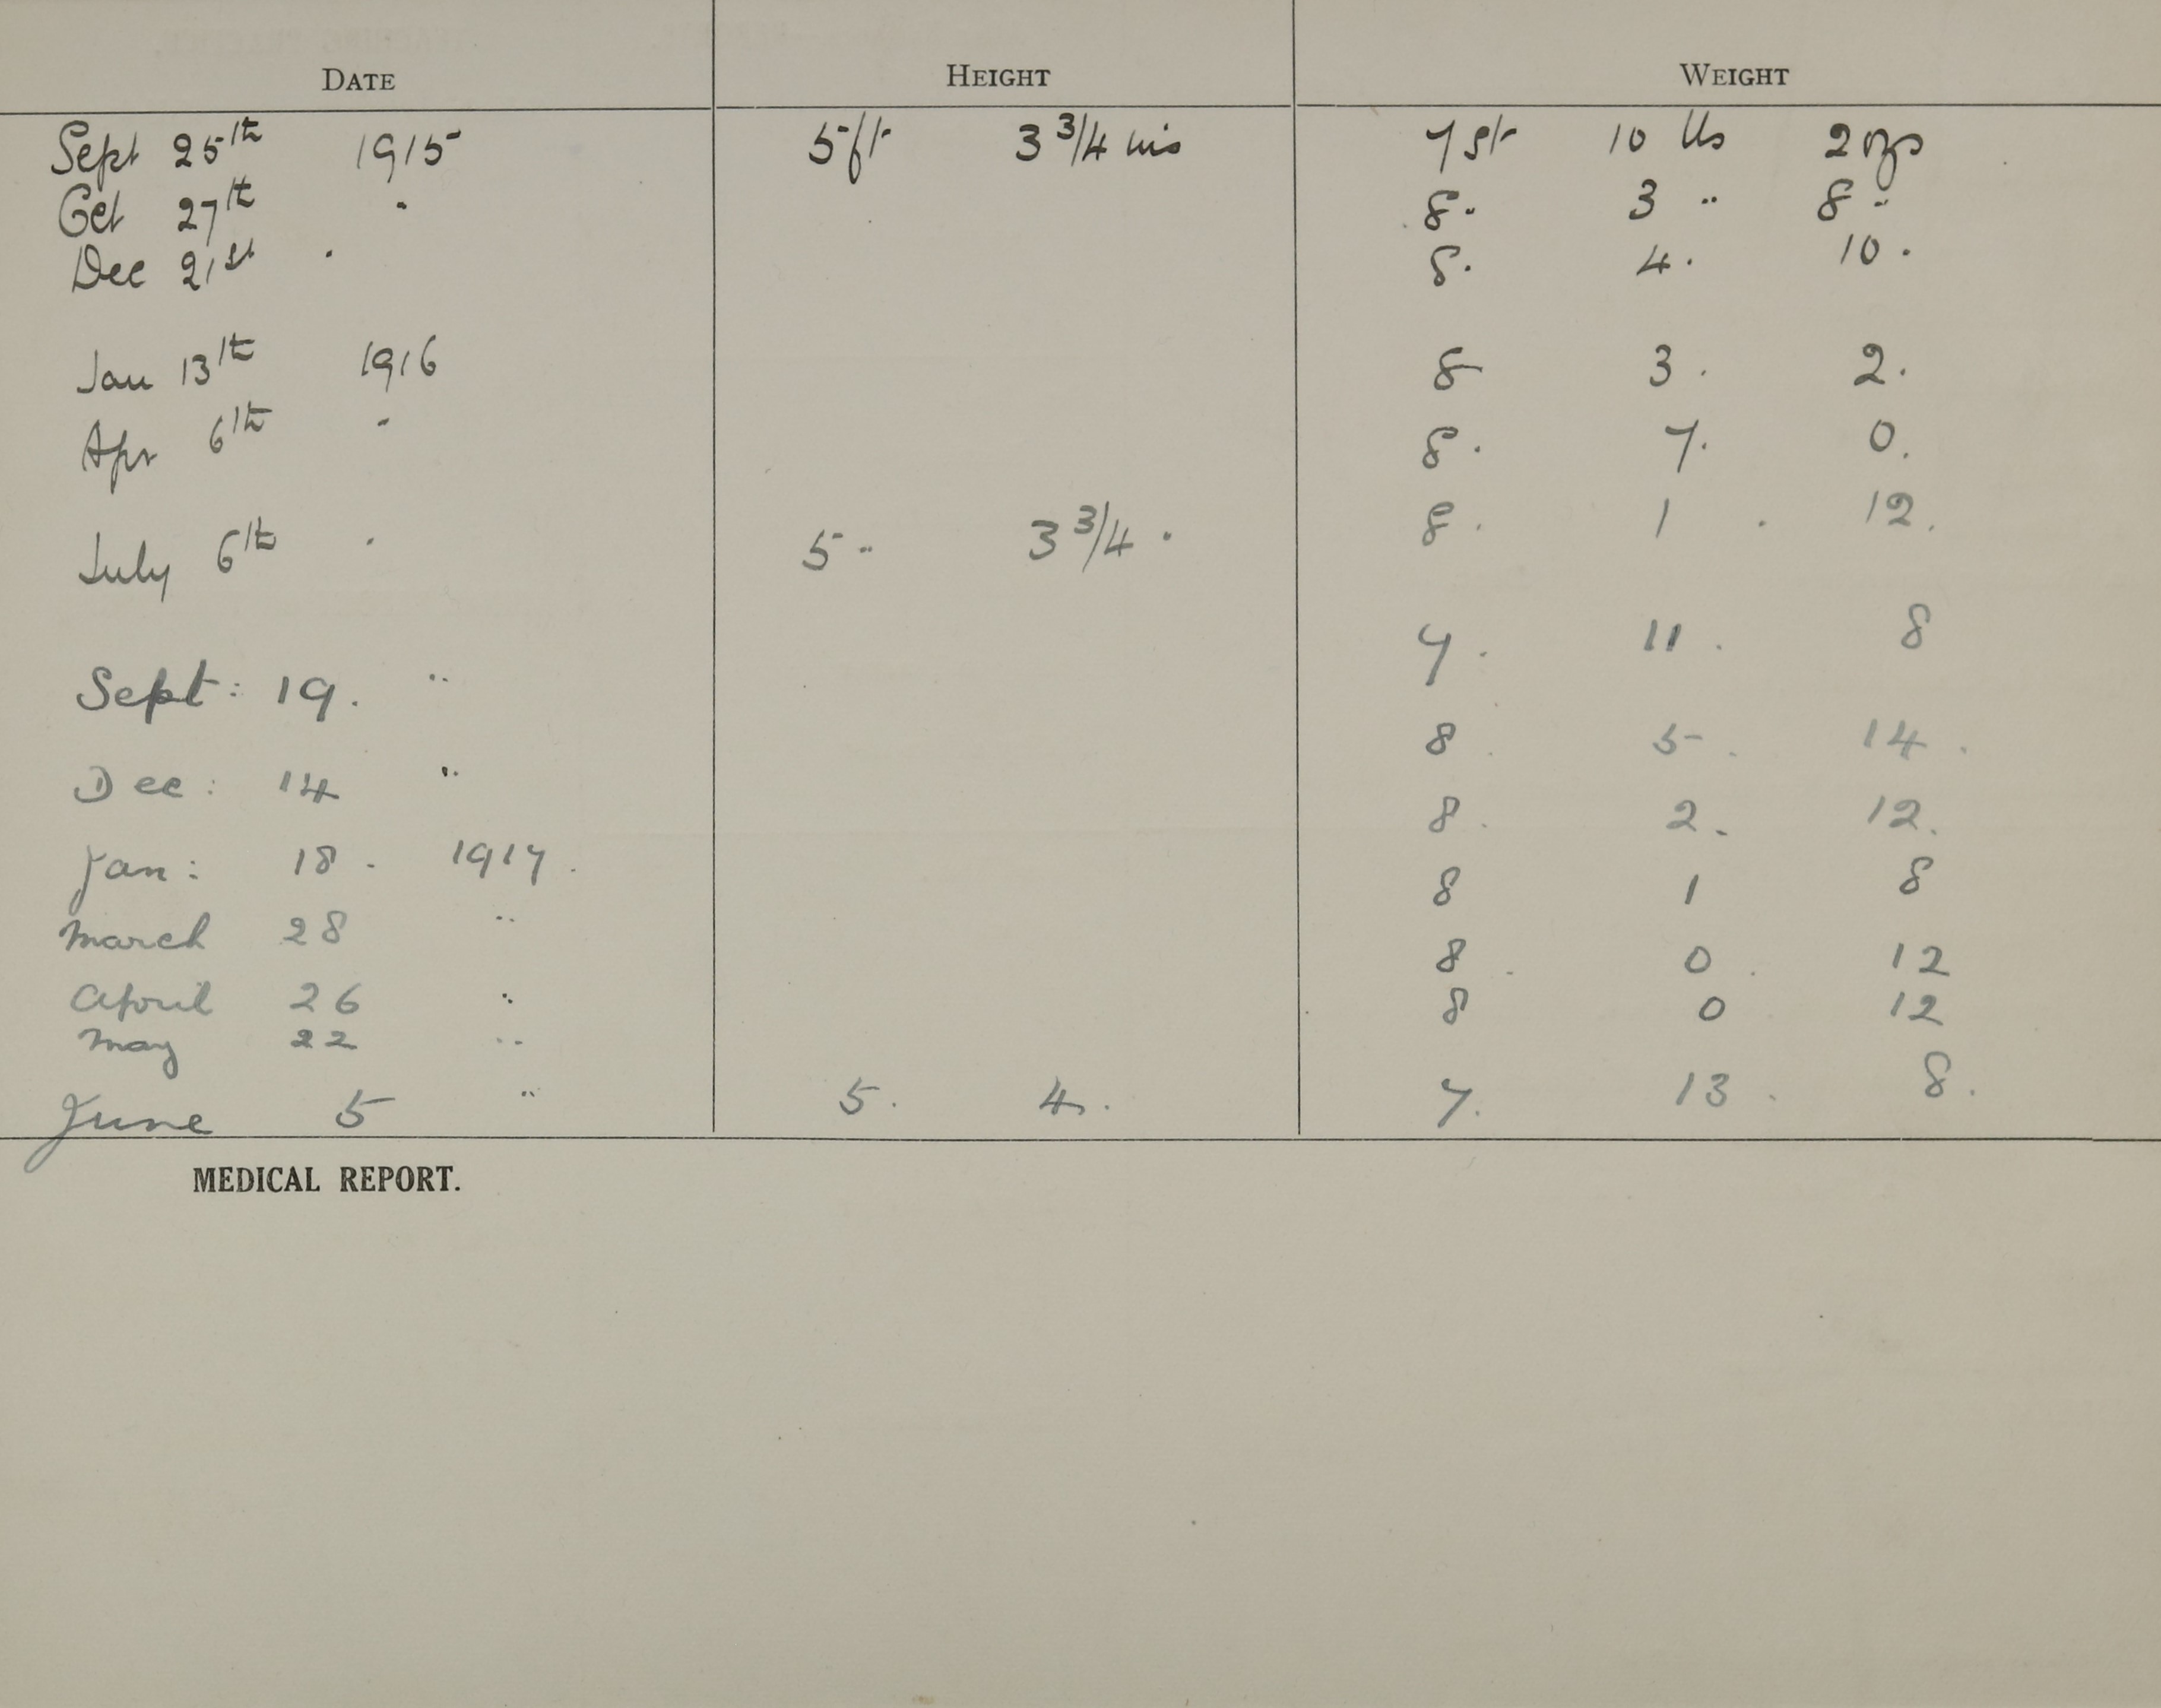 DATE HEIGHT WEIGHT
Sept 25th 1915 5ft 3 3/4 ins 7 st 10 lbs 2 ozs
Oct 27th " 8 " 3 " 8 "
Dec 21st " 8 . 4 . 10 .
Jan 13th 1916 8 3 . 2 .
Apr 6th " 8 . 7 . 0 .
July 6th " 5 " 3 3/4 " 8 . 1 . 12 .
Sept : 19 . " 7 . 11 . 8
Dec : 14 " 8 . 5 . 14 .
Jan : 18 . 1917 . 8 . 2 . 12 .
March 28 " 8 1 8
April 26 " 8 . 0 . 12
May 22 " 8 0 12
June 5 " 5 . 4 . 7 . 13 . 8 .
MEDICAL REPORT.